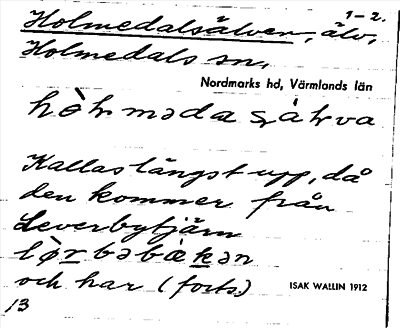 1-2.
Holmedalsälven, älv,
Holmedals sn,
Nordmarks hd, Värmlands län
Kallas längst upp, då
den kommer från
Leverbytjärn
och har (forts.)
ISAK WALLIN 1912
13